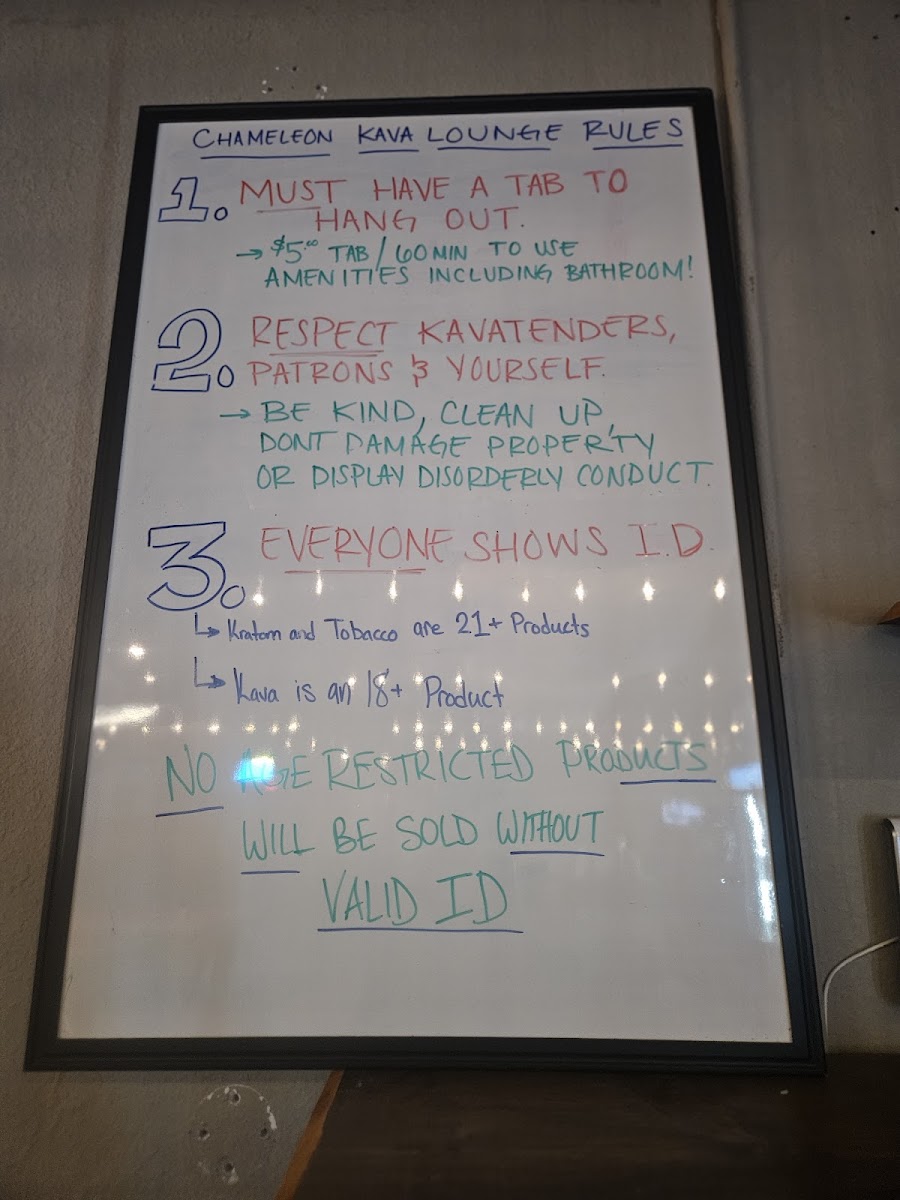 CHAMELEON KAVA LOUNGE RULES
1. MUST HAVE A TAB TO
HANG OUT.
→ $5.00 TAB / 60 MIN TO USE
AMENITIES INCLUDING BATHROOM!
2. RESPECT KAVATENDERS,
PATRONS & YOURSELF.
→ BE KIND, CLEAN UP,
DONT DAMAGE PROPERTY
OR DISPLAY DISORDERLY CONDUCT.
3. EVERYONE SHOWS I.D.
↳ Kratom and Tobacco are 21+ Products
↳ Kava is an 18+ Product
NO AGE RESTRICTED PRODUCTS
WILL BE SOLD WITHOUT
VALID ID